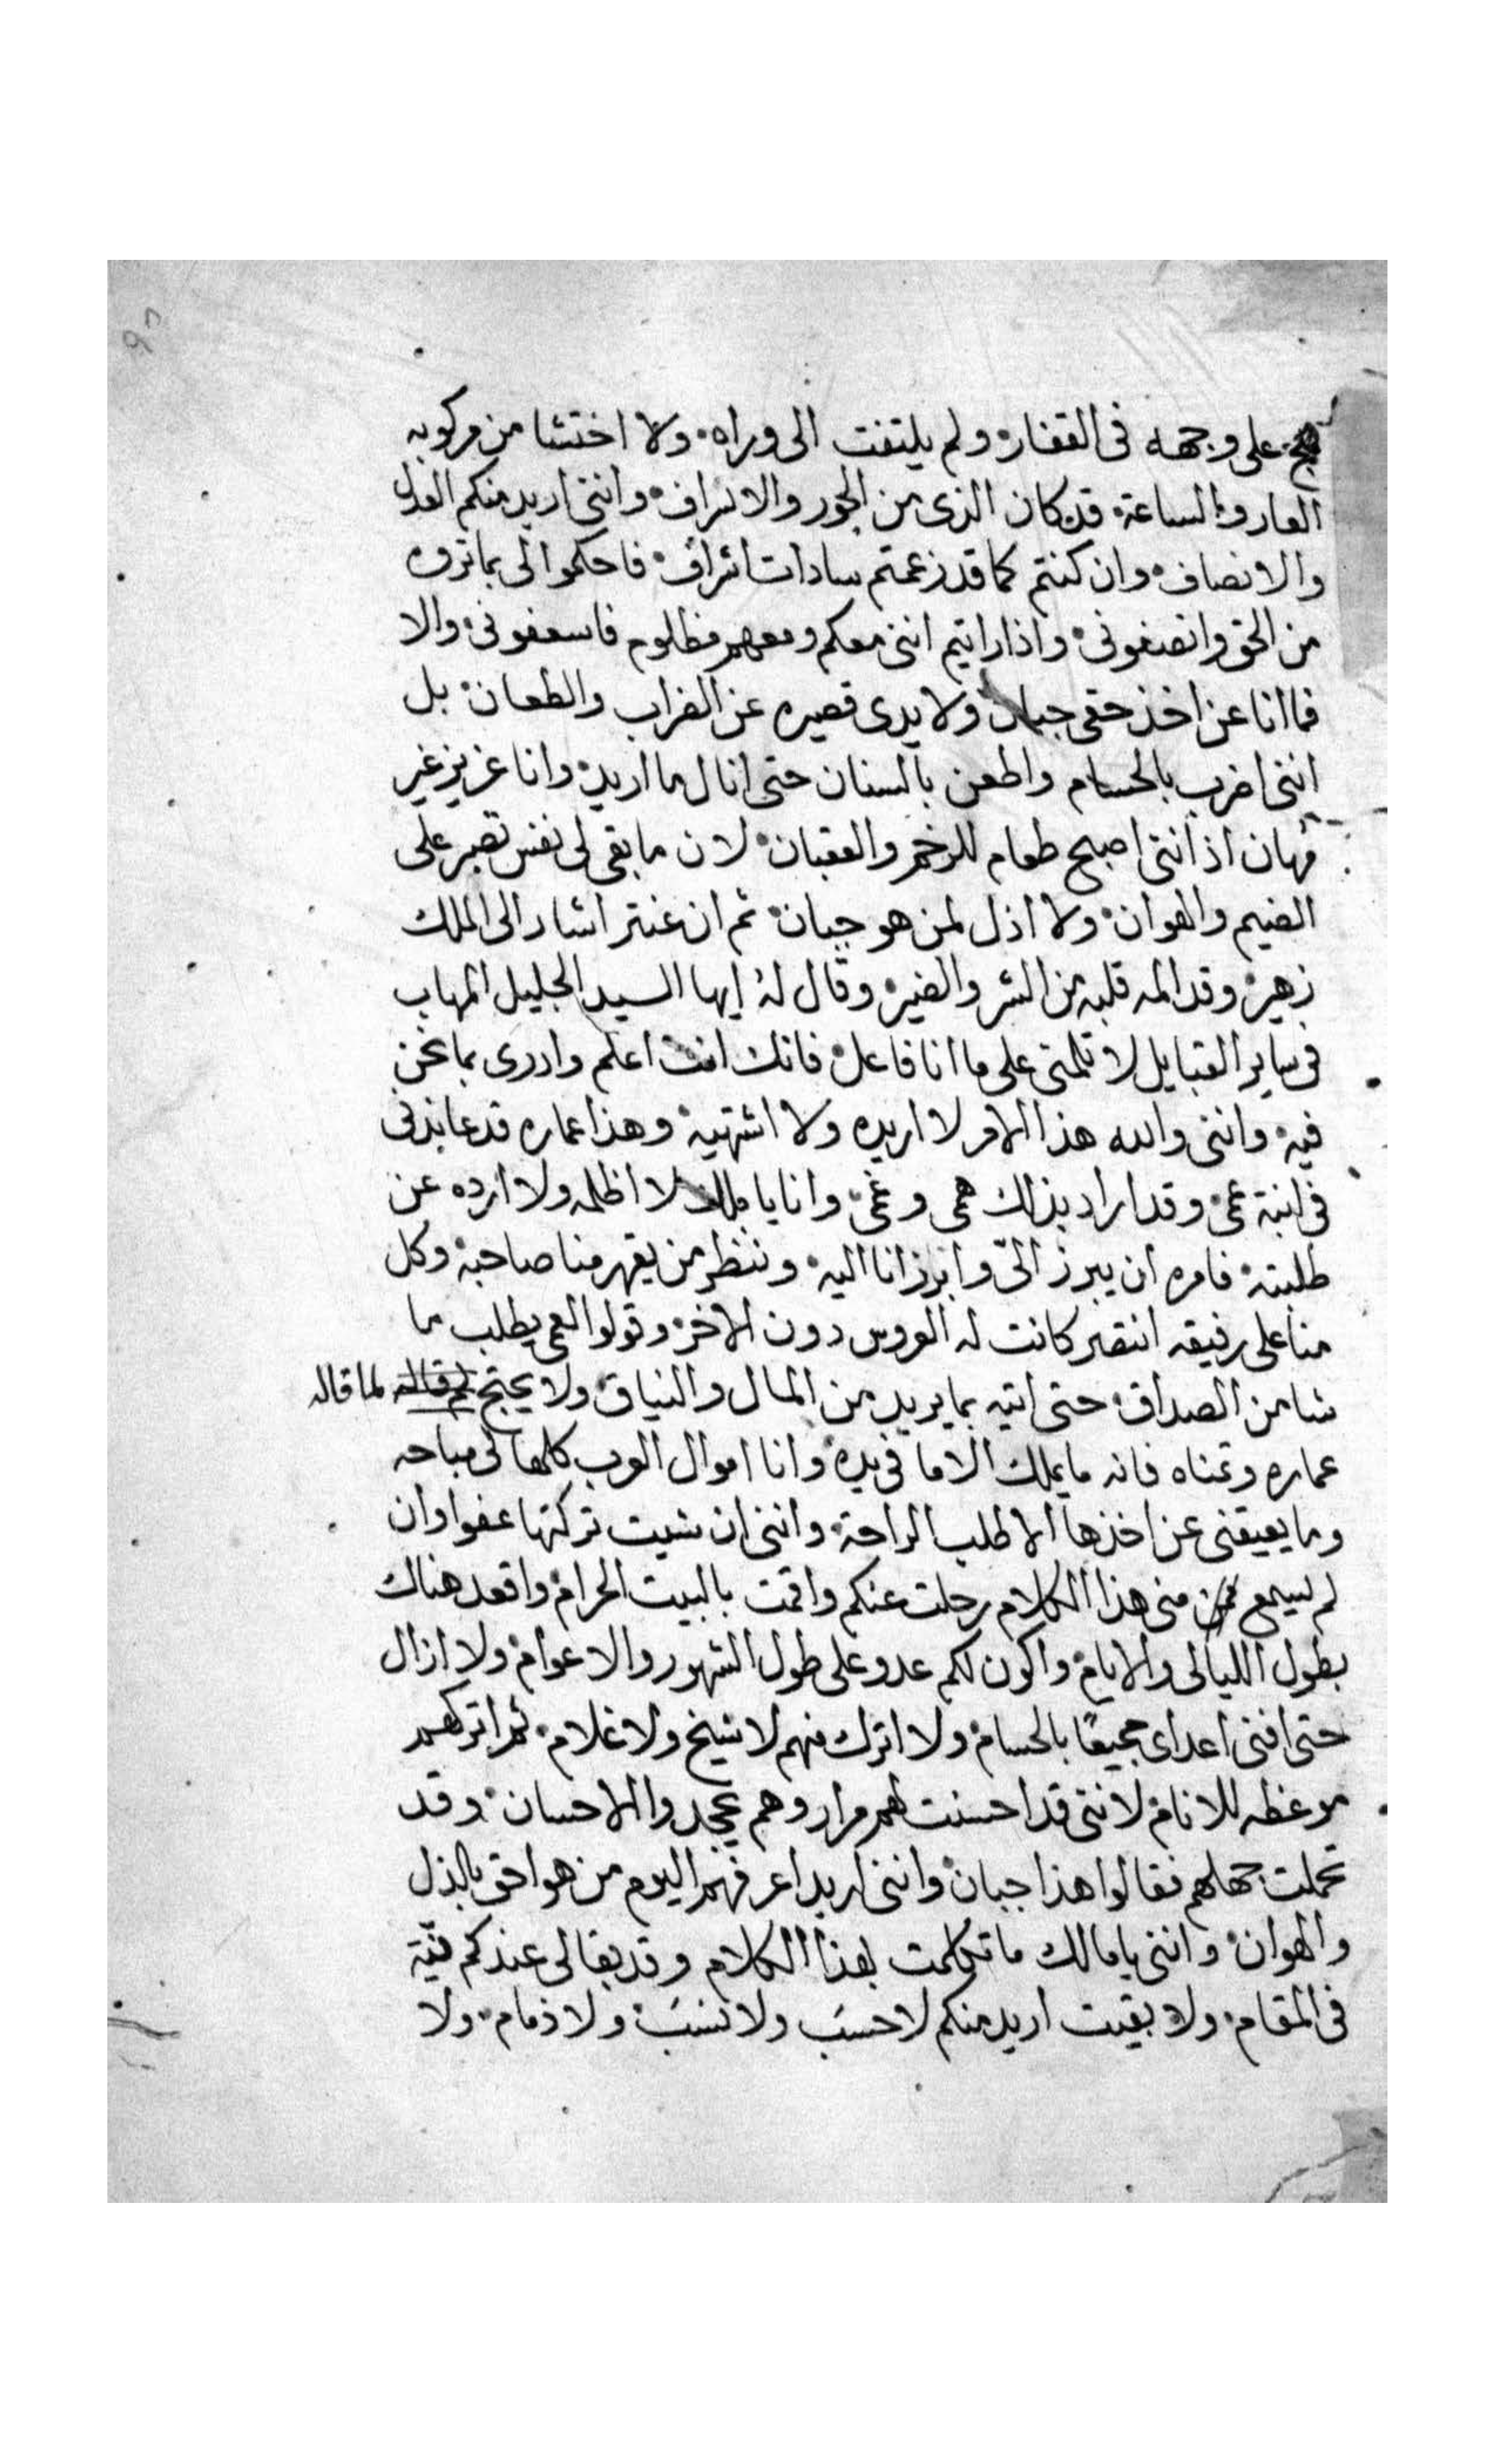 هج على وجهه فى القفار ولم يلتفت الى وراه ولا اختشا من ركوبه
العار والساعة قد كان الذى من الجور والاسراف واننى اريد منكم العدل
والانصاف وان كنتم كما قد زعمتم سادات اشراف فاحكموا لى بما تروه
من الحق وانصفونى واذا رايتم اننى معكم ومعهم مظلوم فاسعفونى والا
فما انا عن اخذ حقى جبان ولا يدى قصيره عن الضراب والطعان بل
اننى اضرب بالحسام واطعن بالسنان حتى انال ما اريد وانا عزيز غير
مهان اذ اننى اصبح طعام للرخم والعقبان لان ما بقى لى نفس تصبر على
الضيم والهوان ولا اذل لمن هو جبان ثم ان عنتر اشار الى الملك
زهير وقد المه قلبه من الشر والضير وقال له ايها السيد الجليل المهاب
فى ساير القبايل لا تلمنى على ما انا فاعل فانك انت اعلم وادرى بما نحن
فيه واننى والله هذا الامر لا اريده ولا اشتهيه وهذا عماره قد عاندنى
فى ابنة عمى وقد اراد بذلك همى وغمى وانا يا ملك لا اظلمه ولا ارده عن
طلبته فامره ان يبرز الىّ وابرز انا اليه وننظر من يقهر منا صاحبه وكل
منا على رفيقه انتصر كانت له العروس دون الاخر وقولوا لعمى يطلب ما
شا من الصداق حتى اتيه بما يريد من المال والنياق ولا يحتج لما قاله
عماره وتمناه فانه ما يملك الا ما فى يده وانا اموال العرب كلها لى مباحه
وما يعيقنى عن اخذها الا طلب الراحة واننى ان شيت تركتها عفوا وان
لم يسمع منى هذا الكلام رحلت عنكم واقمت بالبيت الحرام واقعد هناك
بطول الليالى والايام واكون لكم عدو على طول الشهور والاعوام ولا ازال
حتى افنى اعداى جميعًا بالحسام ولا اترك منهم لا شيخ ولا غلام ثم اتركهم
موعظه للانام لاننى قد احسنت لهم مرار وهم يجحدوا الاحسان وقد
تحملت جهلهم فقالوا هذا جبان واننى اريد اعرفهم اليوم من هو احق بالذل
والهوان واننى يا مالك ما تكلمت بهذا الكلام وقد بقا لى عندكم نيّة
فى المقام ولا بقيت اريد منكم لا حسَب ولا نسَب ولا ذمام ولا